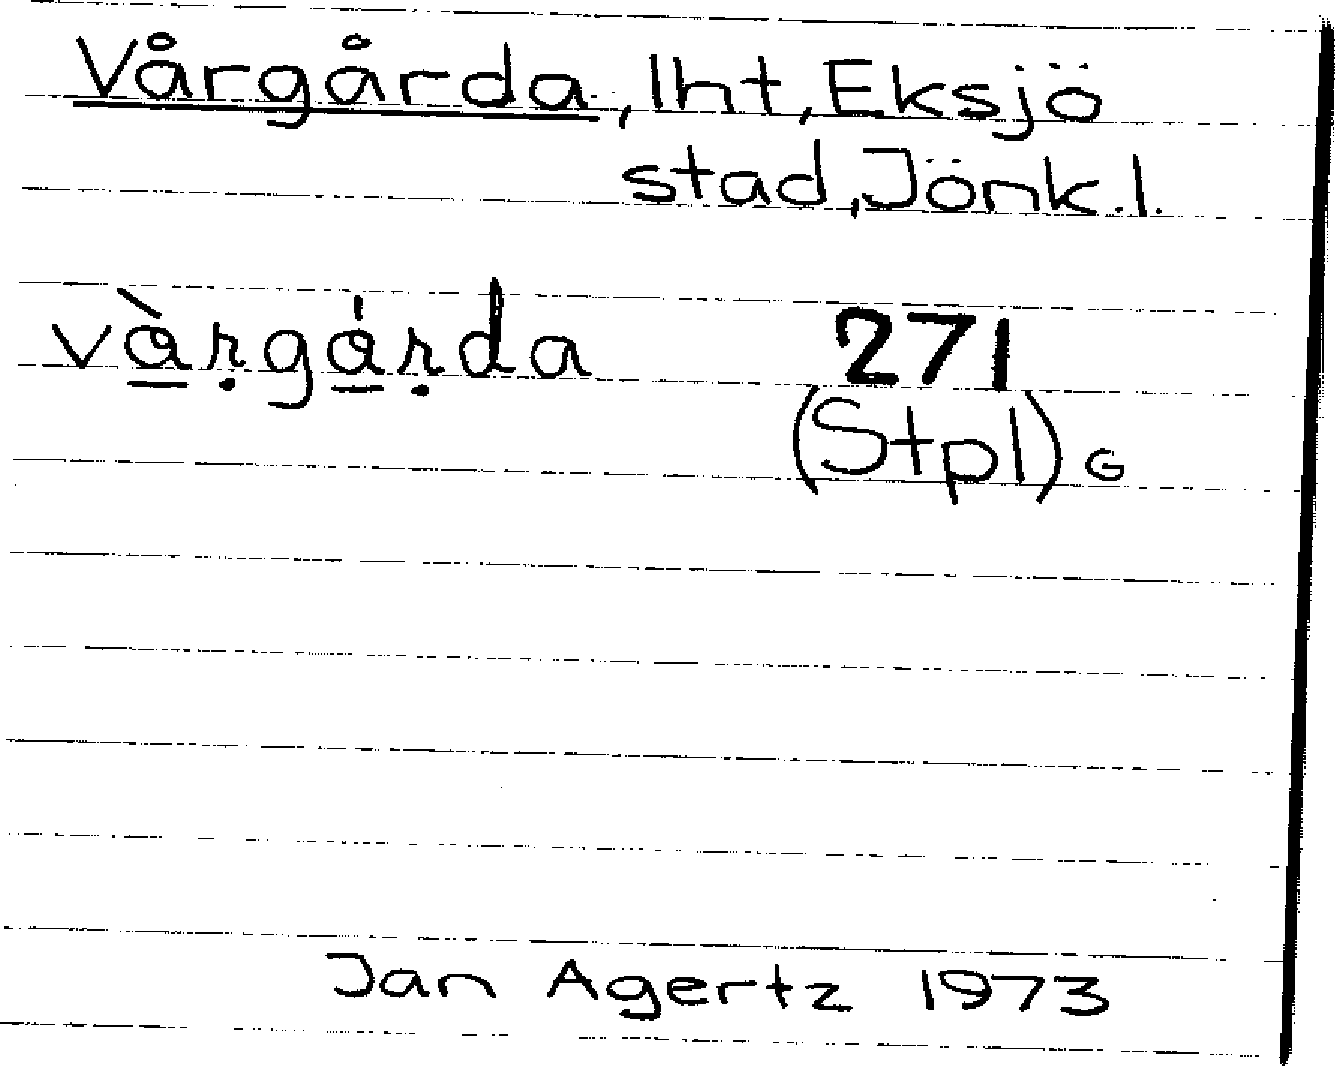 Vårgårda, lht, Eksjö
stad, Jönk.l.
và̱ṛgá̱ṛda 271
(Stpl) G
Jan Agertz 1973